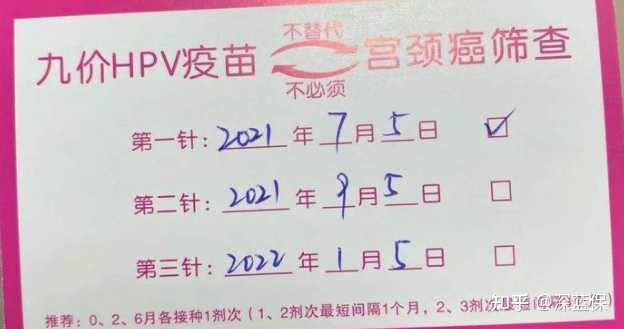 不替代
九价HPV疫苗 宫颈癌筛查
不必须
第一针: 2021 年 7 月 5 日 ☑
第二针: 2021 年 9 月 5 日 □
第三针: 2022 年 1 月 5 日 □
推荐: 0、2、6月各接种1剂次 (1、2剂次最短间隔1个月, 2、3剂次
知乎 @深蓝保